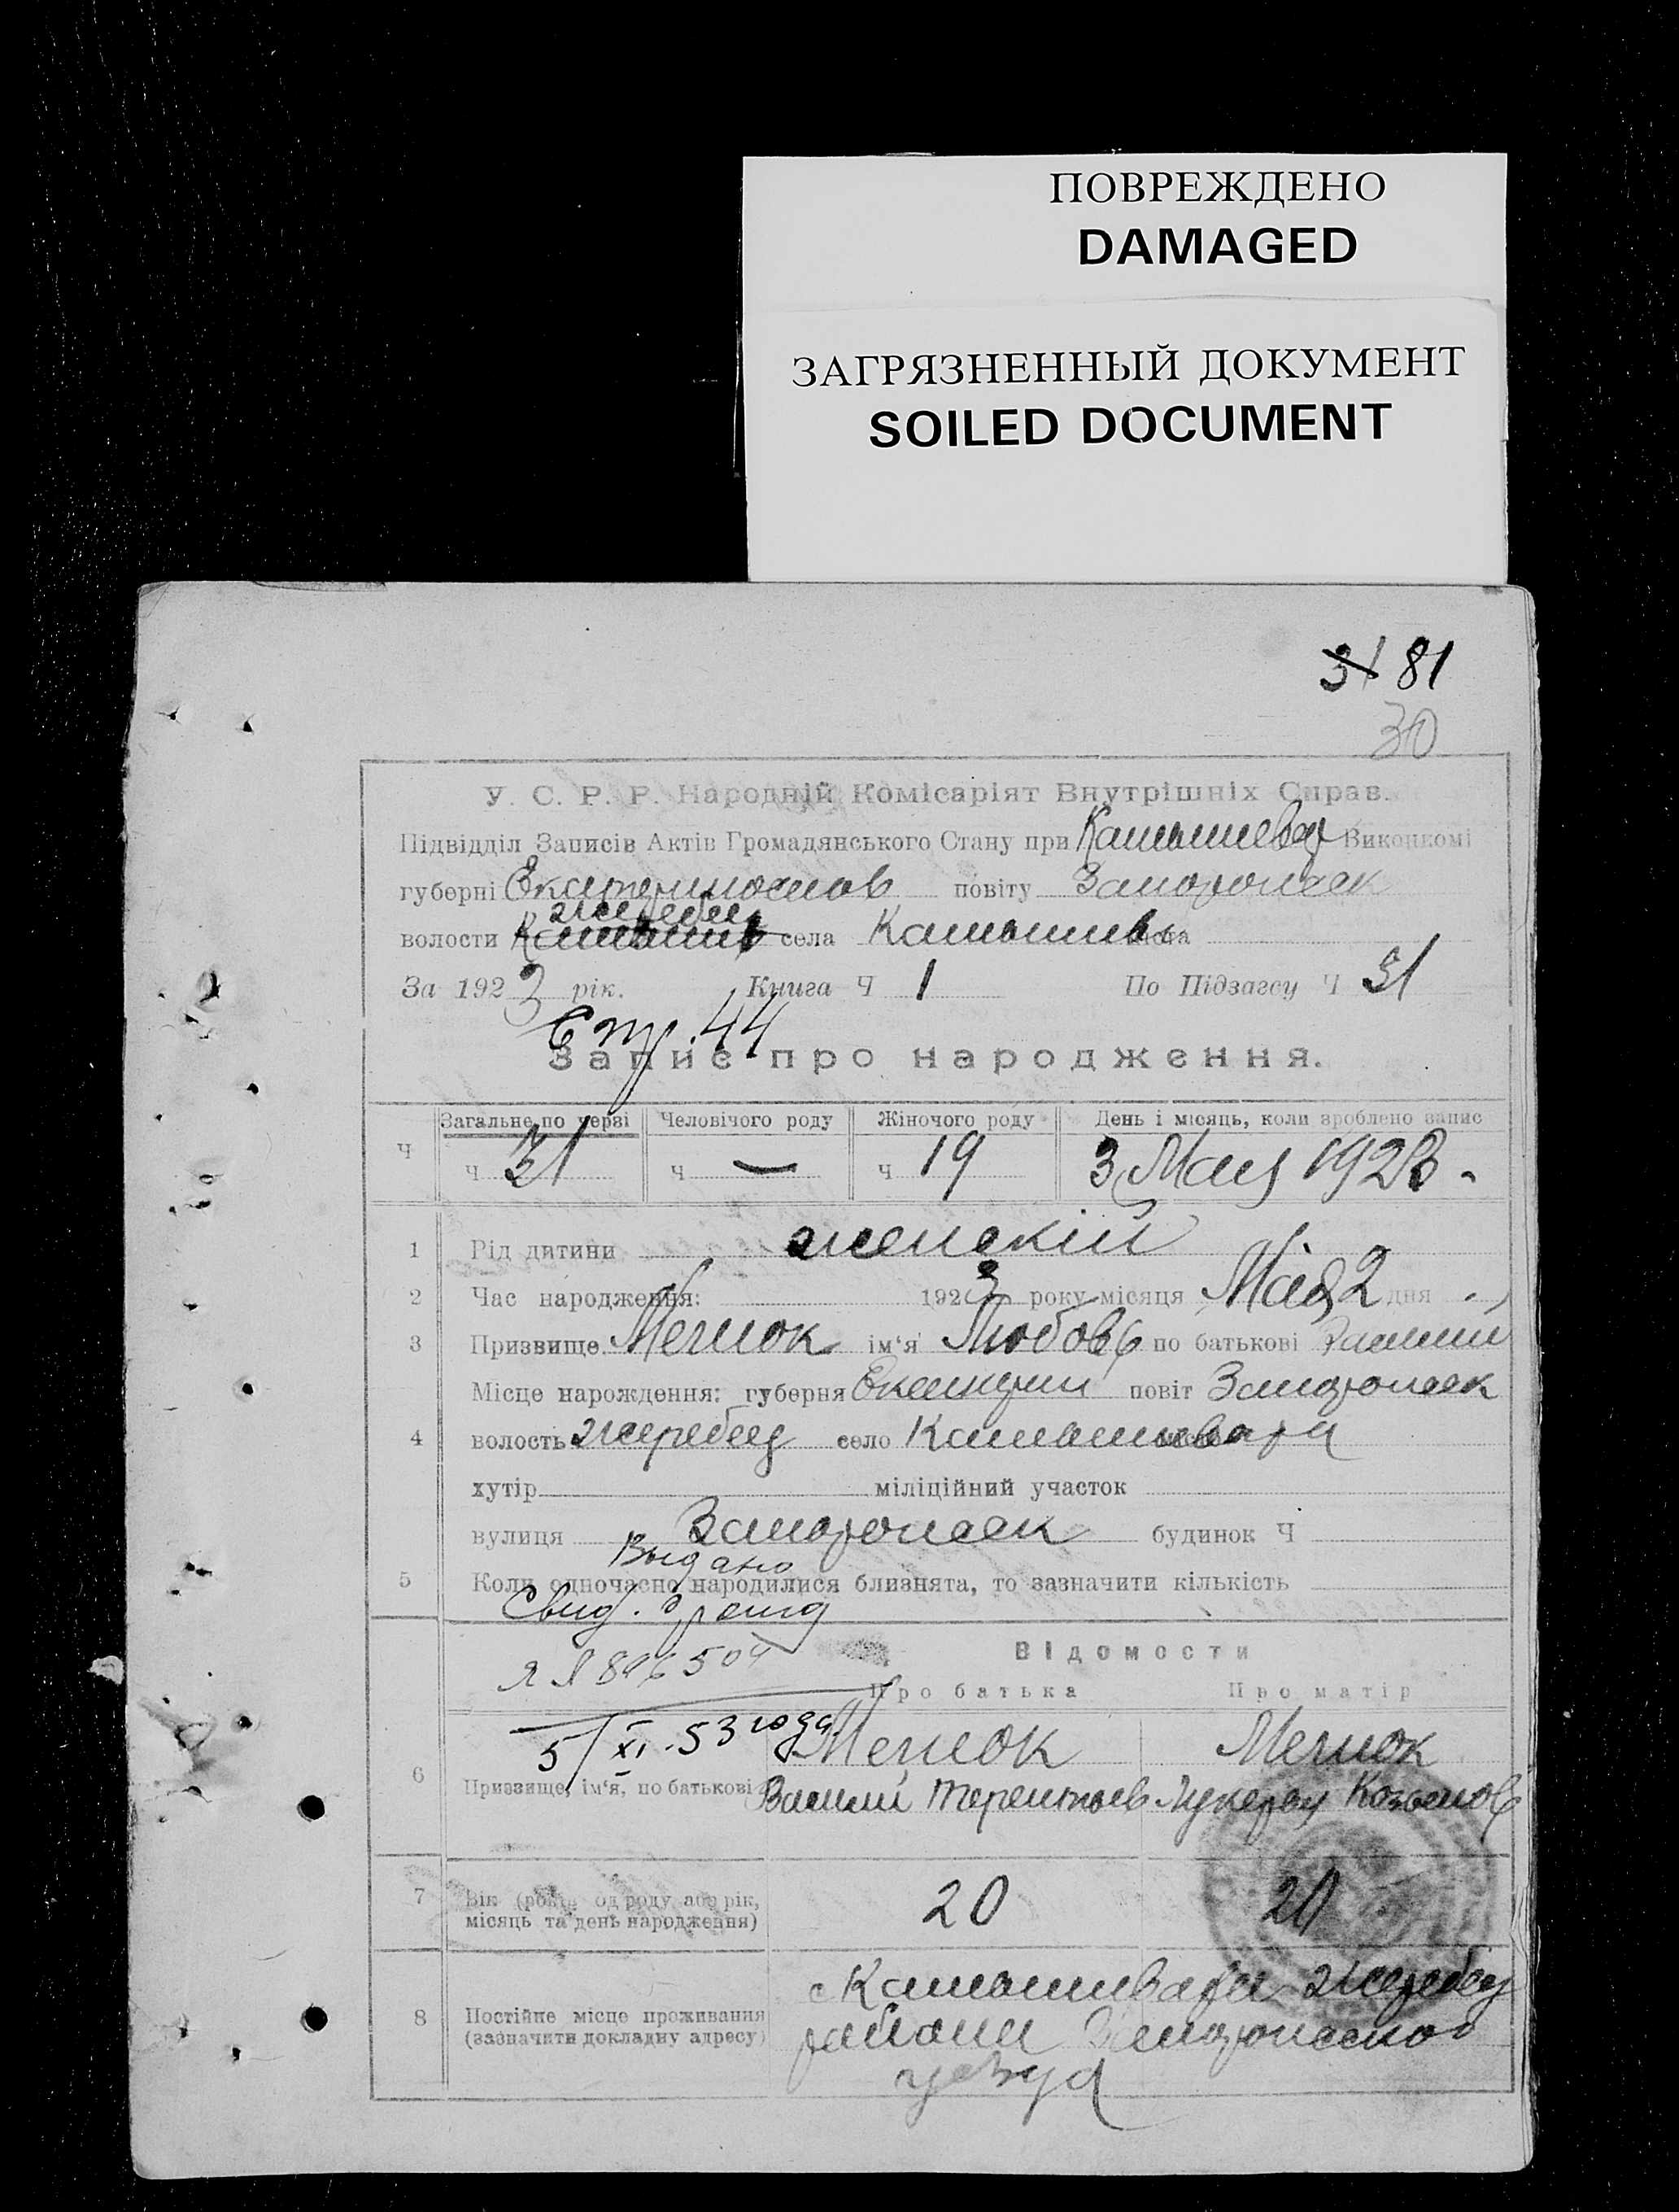 ПОВРЕЖДЕНО
DAMAGED
ЗАГРЯЗНЕННЫЙ ДОКУМЕНТ
SOILED DOCUMENT
31 81
30
У. С. Р. Р. Народній Комісаріят Внутрішніх Справ.
Підвідділ Записів Актів Громадянського Стану при Камышевах Виконкомі
губерні Екатеринослав повіту Запорожск
жеребец
волости села Камышив
За 1923 рік. Книга Ч 1 По Підзагсу Ч 31
Стр. 44
Запис про народження.
Загальне по черзі Человічого роду Жіночого роду День і місяць, коли зроблено запис
Ч ч 31 ч — ч 19 3 Мая 1923.
1 Рід дитини женскій
2 Час народження: 1923 року місяця Мая 2 дня
3 Призвище Мечок ім'я Любовь по батькові
Місце нарождення: губерня повіт Запорожск
4 волость жеребец село Камышеваха
хутір міліційний участок
вулиця Запорожск будинок Ч
Выдано
5 Коли одночасно народилися близнята, то зазначити кількість
Свид.
Відомости
Про батька Про матір
5/XI-53 года
Мечок Мечок
6 Призвище, ім'я, по батькові Василий Терентьев Лукерья
7 Вік (років од роду або рік, місяць та день народження) 20 20
с Камышиваха жеребец
8 Постійне місце проживання (зазначити докладну адресу) района Запорожского
уезда